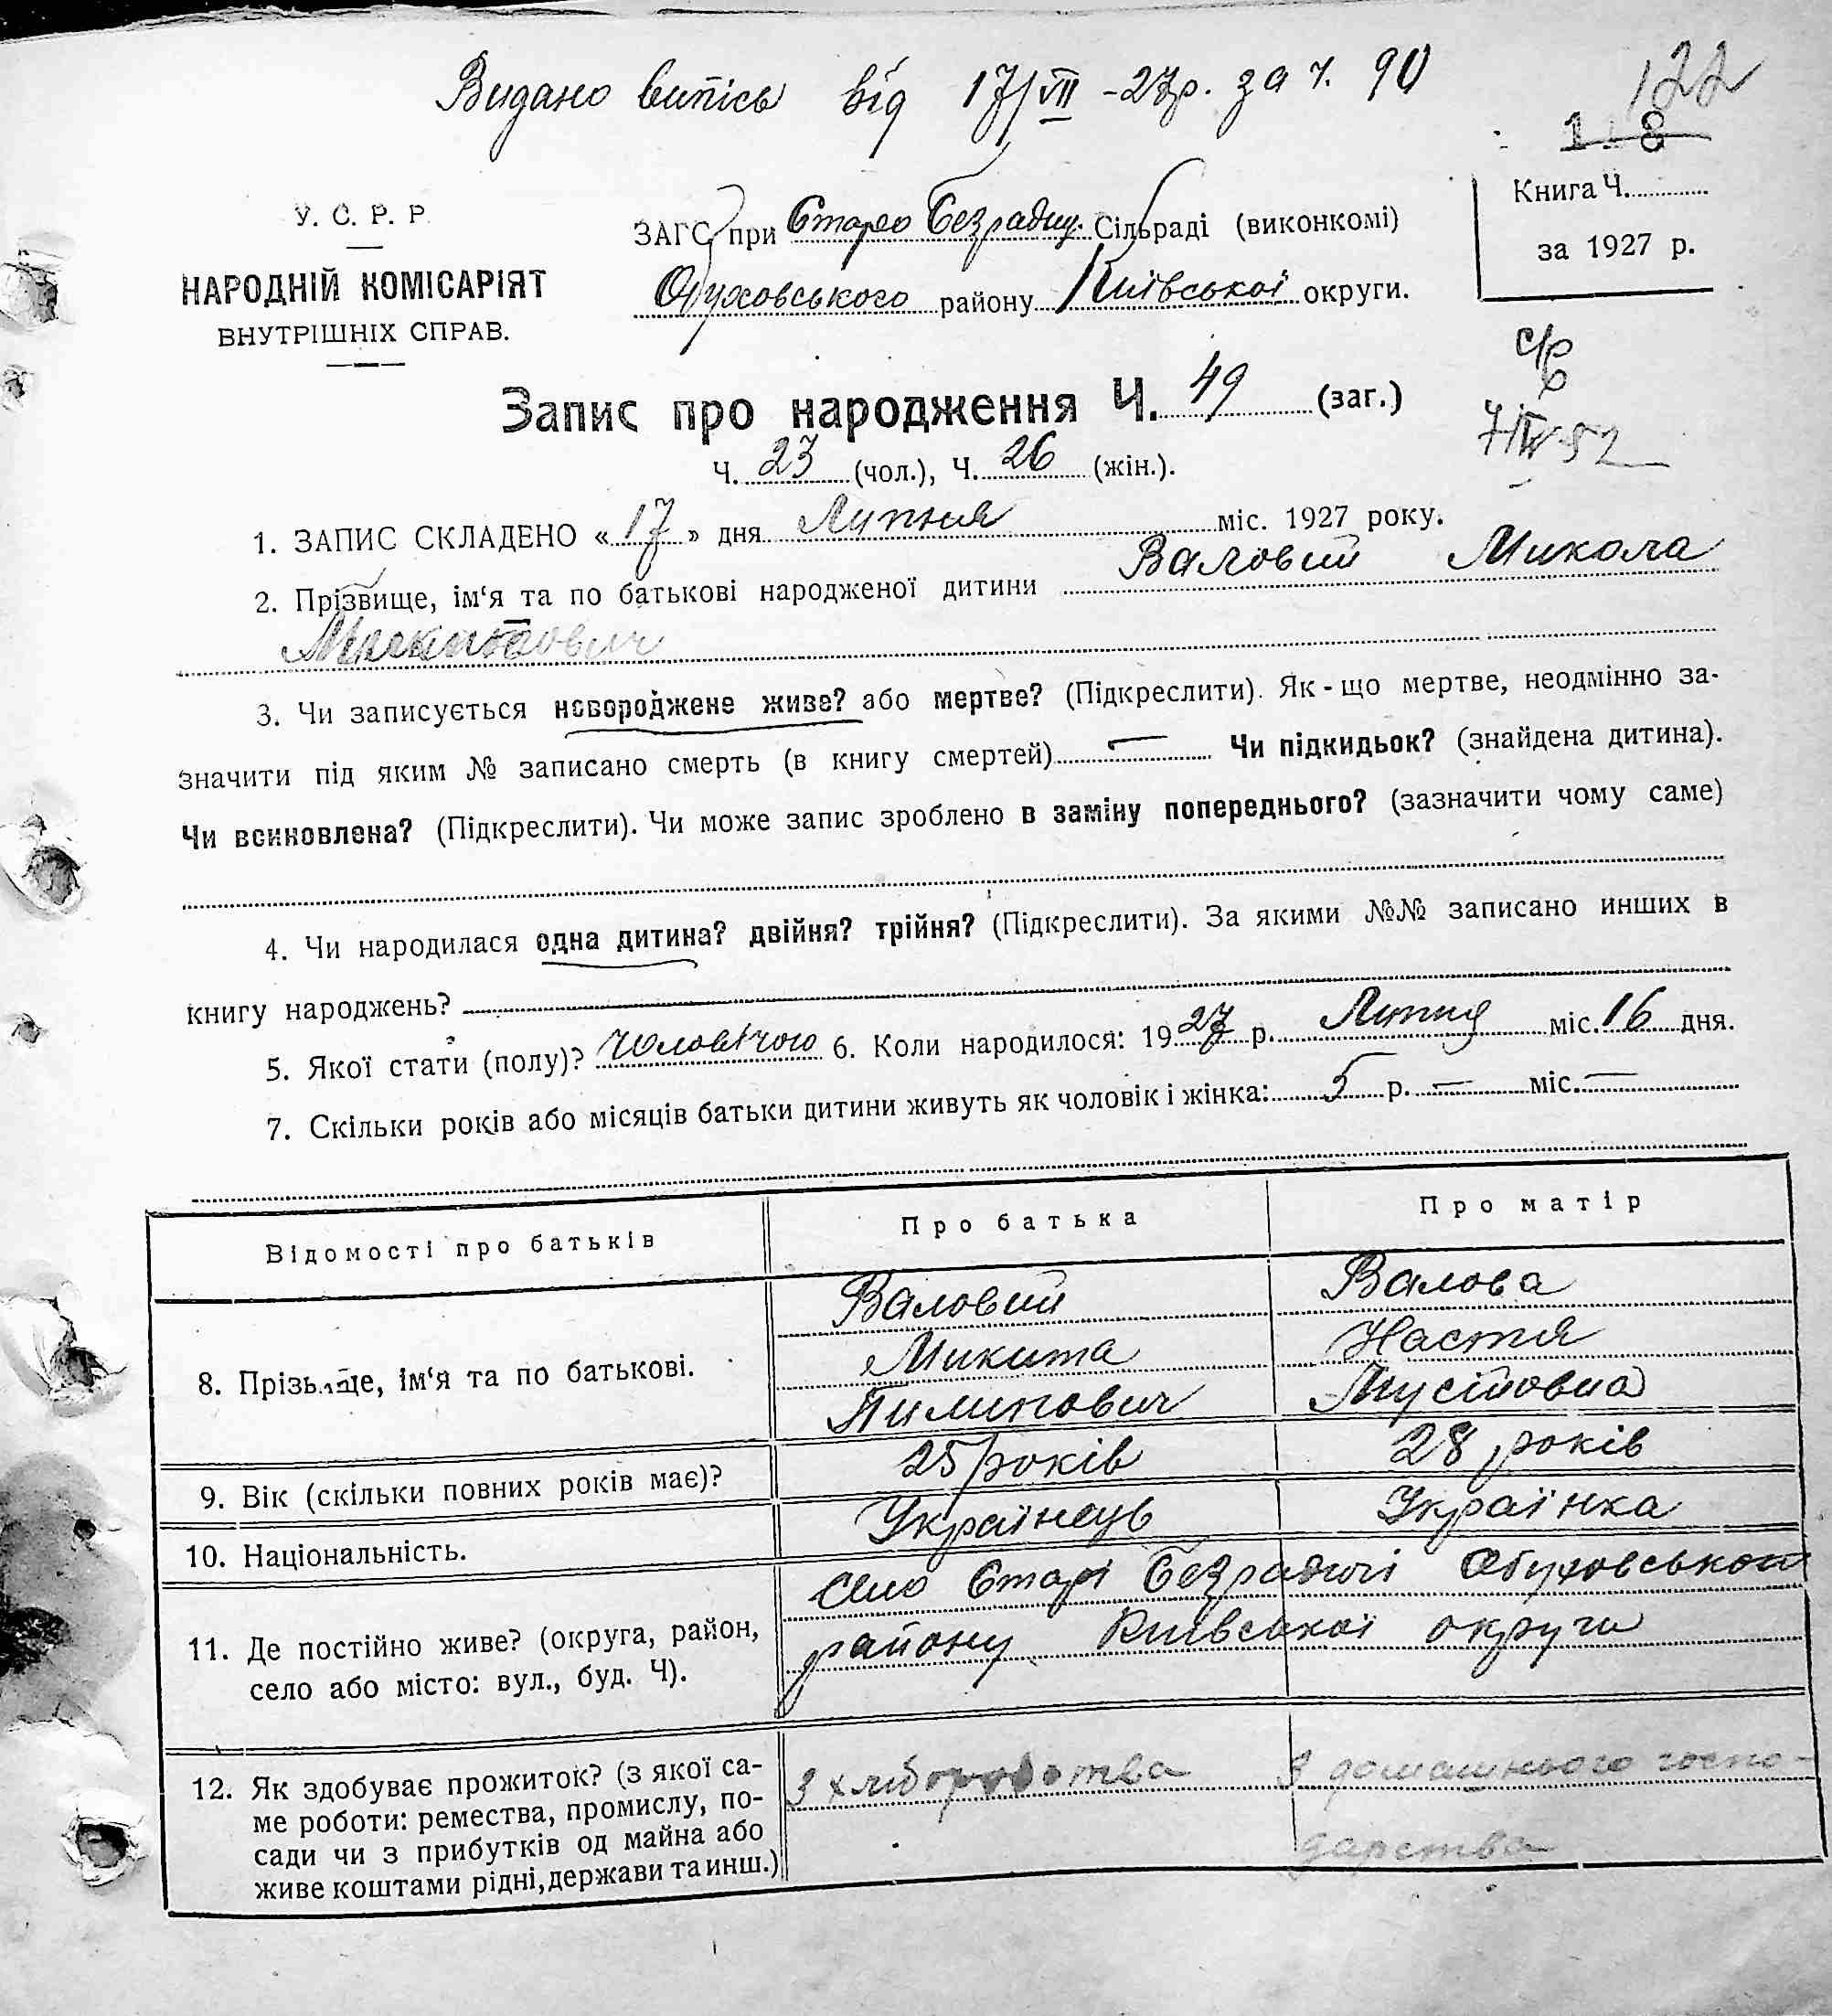 Видано випісь від 17/VII -27р. за ч. 90
122
1 8
У. С. Р. Р.
НАРОДНІЙ КОМІСАРІЯТ
ВНУТРІШНІХ СПРАВ.
ЗАГС при Старо Безрадиц. Сільраді (виконкомі)
Обуховського району Київської округи.
Книга Ч.
за 1927 р.
7/IV 52
Запис про народження Ч. 49 (заг.)
Ч. 23 (чол.), Ч. 26 (жін.).
1. ЗАПИС СКЛАДЕНО « 17 » дня Липня міс. 1927 року.
2. Прізвище, ім‘я та по батькові народженої дитини Валовий Микола
Микитович
3. Чи записується новороджене живе? або мертве? (Підкреслити). Як-що мертве, неодмінно за-
значити під яким № записано смерть (в книгу смертей) — Чи підкидьок? (знайдена дитина).
Чи всиновлена? (Підкреслити). Чи може запис зроблено в заміну попереднього? (зазначити чому саме)
4. Чи народилася одна дитина? двійня? трійня? (Підкреслити). За якими №№ записано инших в
книгу народжень?
5. Якої стати (полу)? чоловічого 6. Коли народилося: 1927 р. Липня міс. 16 дня.
7. Скільки років або місяців батьки дитини живуть як чоловік і жінка: 5 р. — міс. —
Відомості про батьків Про батька Про матір
8. Прізвище, ім‘я та по батькові.
Валовий Валова
Микита Настя
Пилипович
9. Вік (скільки повних років має)? 25 років 28 років
10. Національність. Українець Українка
11. Де постійно живе? (округа, район,
село або місто: вул., буд. Ч).
село Старі Безрадичі Обуховського
району Київської округи
12. Як здобуває прожиток? (з якої са-
ме роботи: ремества, промислу, по-
сади чи з прибутків од майна або
живе коштами рідні, держави та инш.)
З хліборобства З домашнього госпо-
дарства